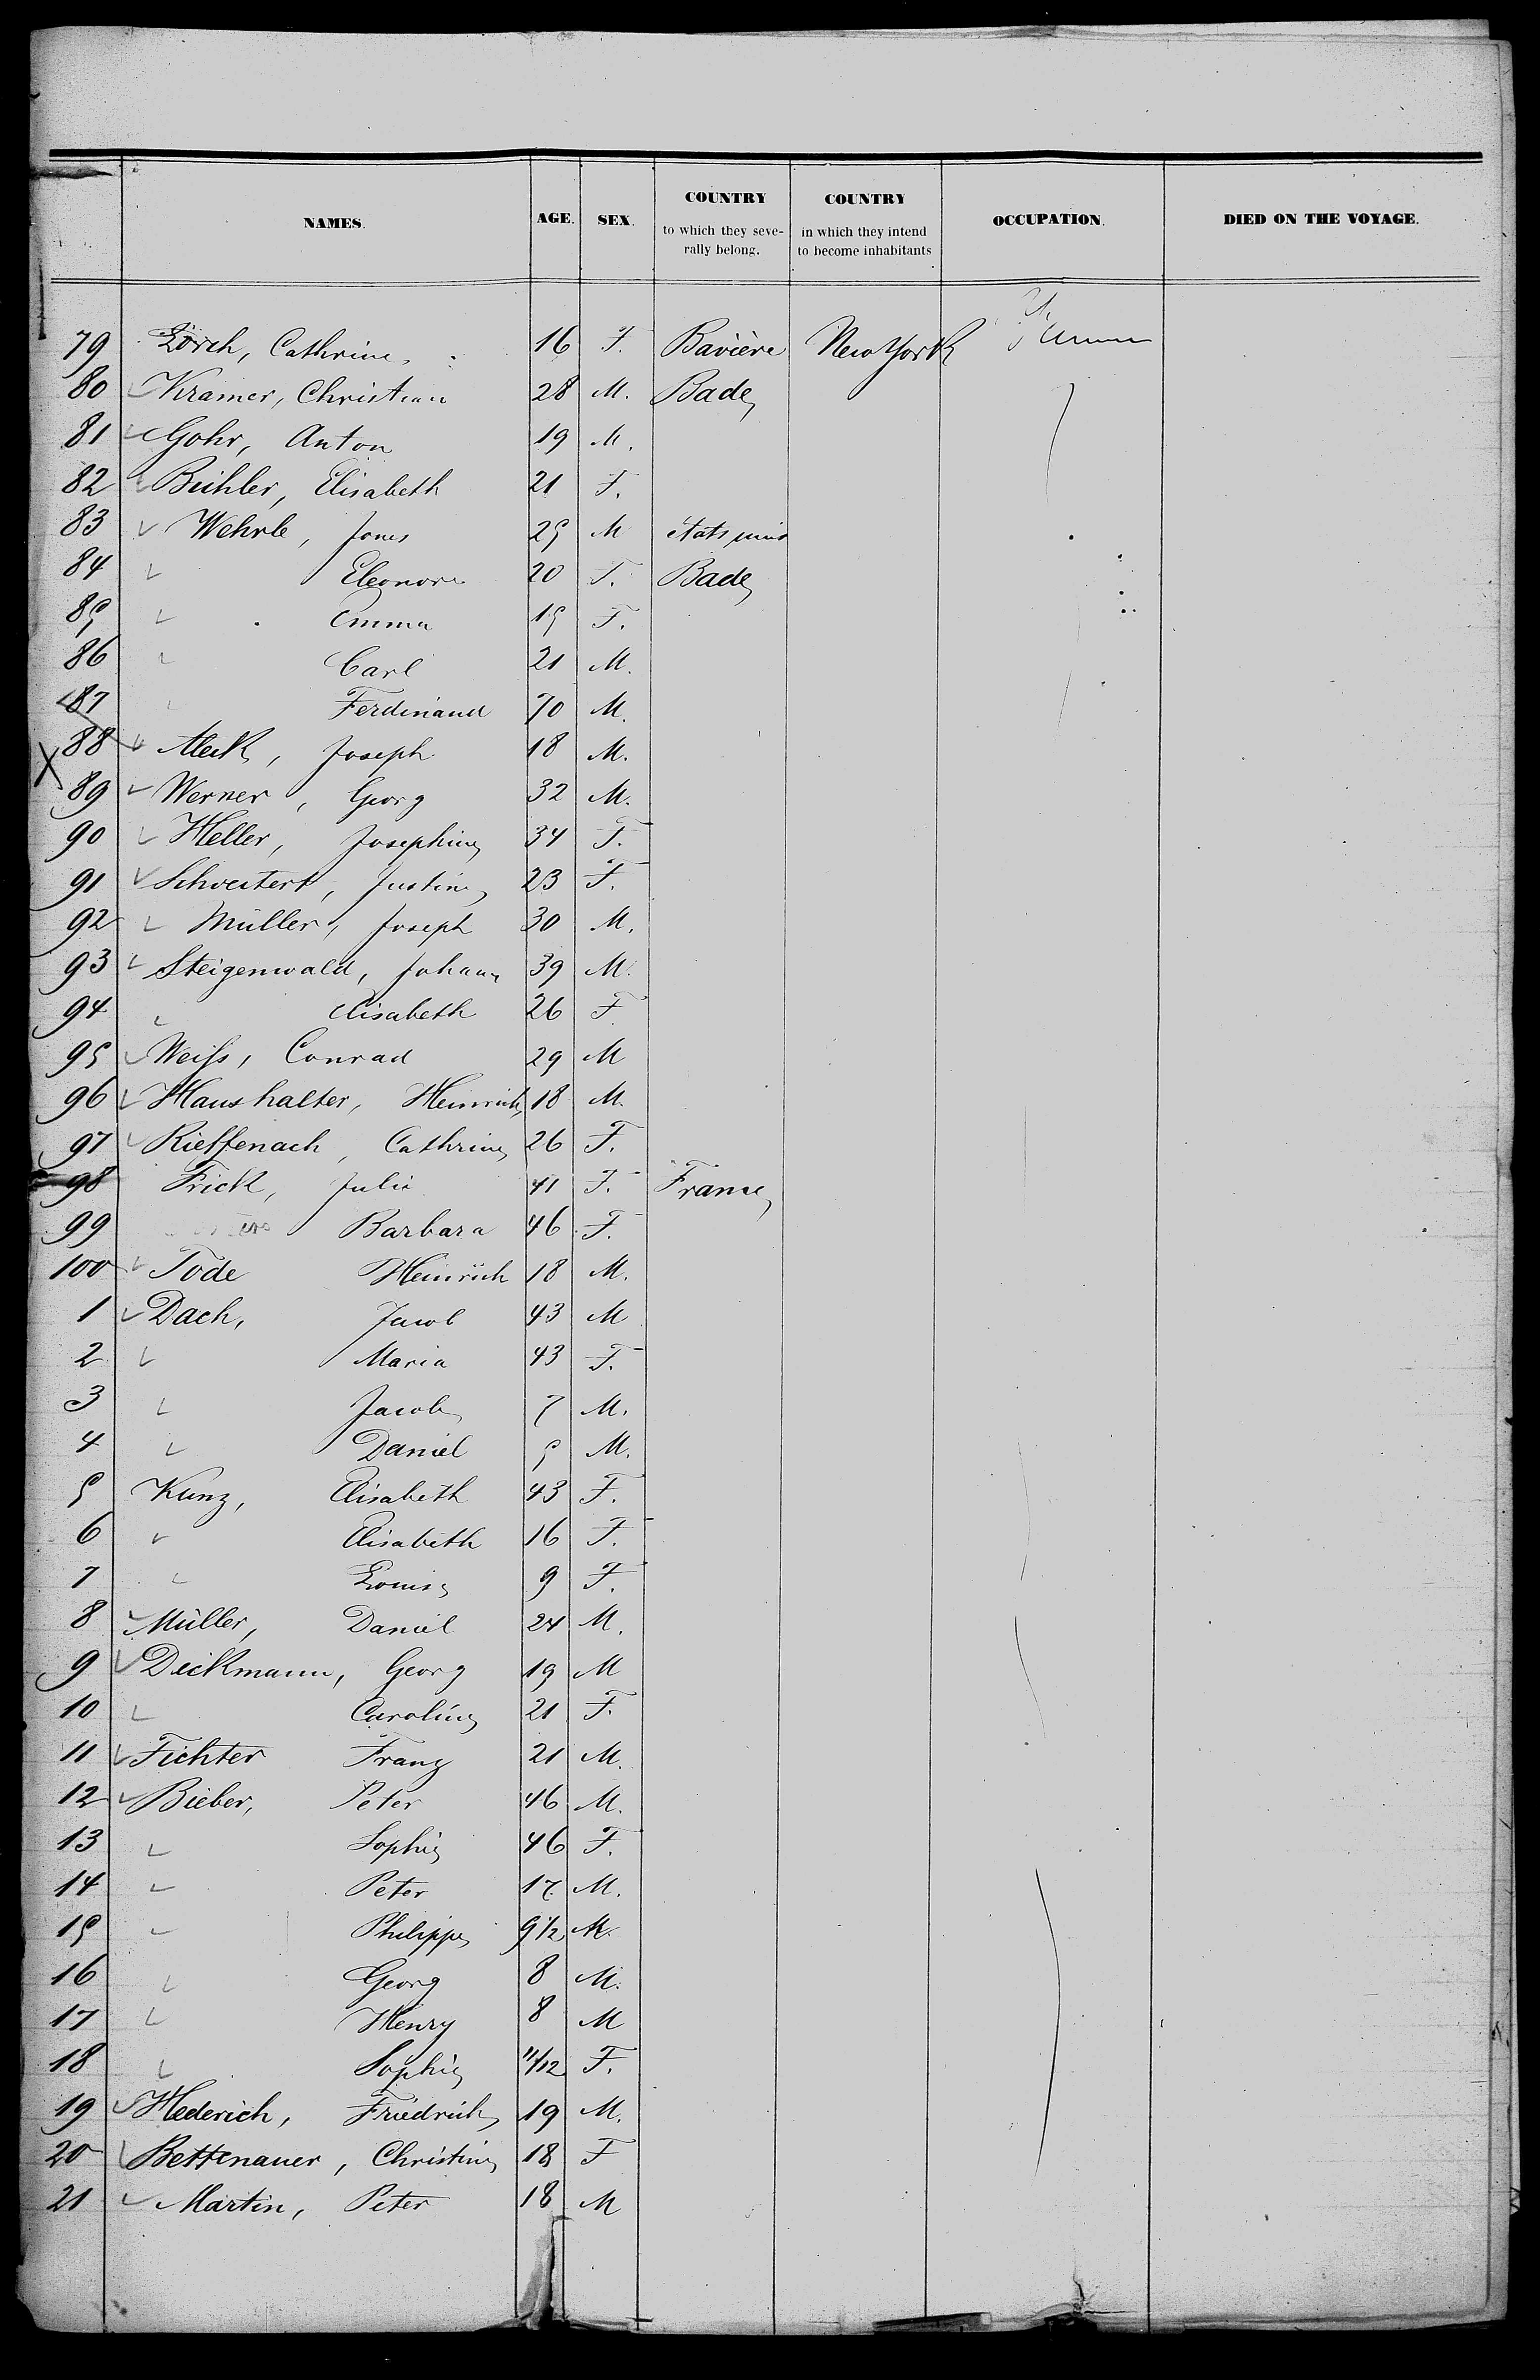 NAMES. AGE. SEX. COUNTRY to which they seve- rally belong. COUNTRY in which they intend to become inhabitants OCCUPATION. DIED ON THE VOYAGE.
79 Lorch, Cathrine 16 F. Bavière New York
80 Kramer, Christian 28 M. Bade
81 Gohr, Anton 19 M.
82 Beihler, Elisabeth 21 F.
83 Wehrle, Jones 25 M états unis
84 " Eleonore 20 F. Bade
85 " Emma 15 F.
86 " Carl 21 M.
87 " Ferdinand 70 M.
88 Meck, Joseph 18 M.
89 Werner, Georg 32 M.
90 Heller, Josephine 34 F.
91 Schweitert, Justine 23 F.
92 Müller, Joseph 30 M.
93 Steigenwald, Johann 39 M.
94 " Elisabeth 26 F
95 Weiss, Conrad 29 M
96 Haushalter, Heinrich 18 M.
97 Rieffenach, Cathrine 26 F.
98 Frick, Julie 41 F. France
99 Barbara 46 F.
100 Tode Heinrich 18 M.
1 Dach, Jacob 43 M
2 " Maria 43 F.
3 " Jacob 7 M.
4 " Daniel 5 M.
5 Kunz, Elisabeth 43 F.
6 " Elisabeth 16 F.
7 " Louise 9 F.
8 Müller, Daniel 24 M.
9 Dickmann, Georg 19 M
10 " Caroline 21 F.
11 Fichter Franz 21 M.
12 Bieber, Peter 46 M.
13 " Sophie 46 F.
14 " Peter 17 M.
15 " Philippe 9 1/2 M.
16 " Georg 8 M.
17 " Henry 8 M
18 " Sophie 11/12 F.
19 Hederich, Friedrich 19 M.
20 Bettenauer, Christine 18 F
21 Martin, Peter 18 M